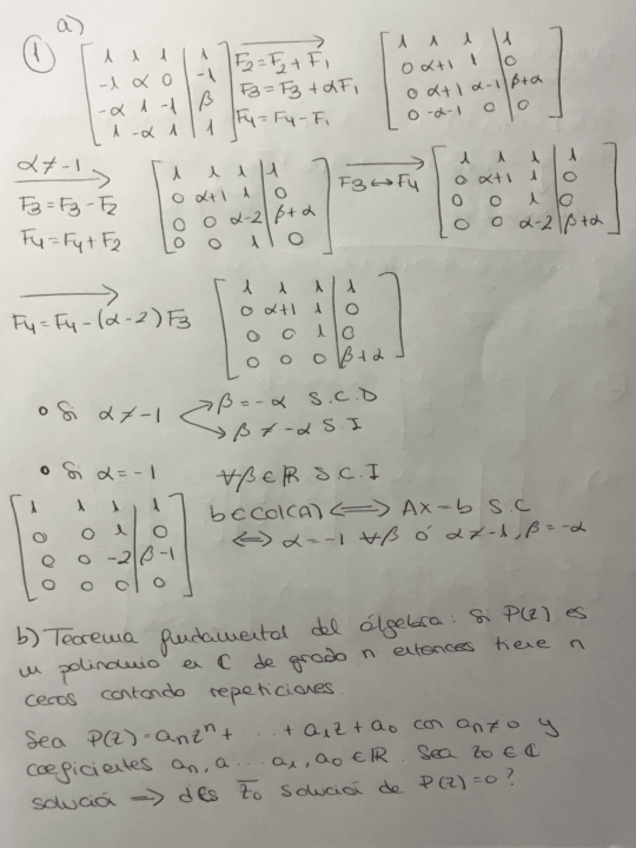 a)
① [ 1 1 1 | 1 ; -1 α 0 | -1 ; -α 1 -1 | β ; 1 -α 1 | 1 ] → F2=F2+F1 F3=F3+αF1 F4=F4-F1 [ 1 1 1 | 1 ; 0 α+1 1 | 0 ; 0 α+1 α-1 | β+α ; 0 -α-1 0 | 0 ]
α≠-1 → F3=F3-F2 F4=F4+F2 [ 1 1 1 | 1 ; 0 α+1 1 | 0 ; 0 0 α-2 | β+α ; 0 0 1 | 0 ] → F3↔F4 [ 1 1 1 | 1 ; 0 α+1 1 | 0 ; 0 0 1 | 0 ; 0 0 α-2 | β+α ]
→ F4=F4-(α-2)F3 [ 1 1 1 | 1 ; 0 α+1 1 | 0 ; 0 0 1 | 0 ; 0 0 0 | β+α ]
• Si α≠-1 → β=-α S.C.D
→ β≠-α S.I
• Si α=-1 ∀β∈ℝ S.C.I
[ 1 1 1 | 1 ; 0 0 1 | 0 ; 0 0 -2 | β-1 ; 0 0 0 | 0 ]
b∈Col(A) ⟺ AX=b S.C
⟺ α=-1 ∀β ó α≠-1, β=-α
b) Teorema fundamental del álgebra: Si P(z) es
un polinomio en ℂ de grado n entonces tiene n
ceros contando repeticiones.
Sea P(z)=anzⁿ+ ... +a1z+a0 con an≠0 y
coeficientes an, a... a1, a0 ∈ℝ. Sea z0∈ℂ
solución ⇒ ¿Es z̄0 solución de P(z)=0?